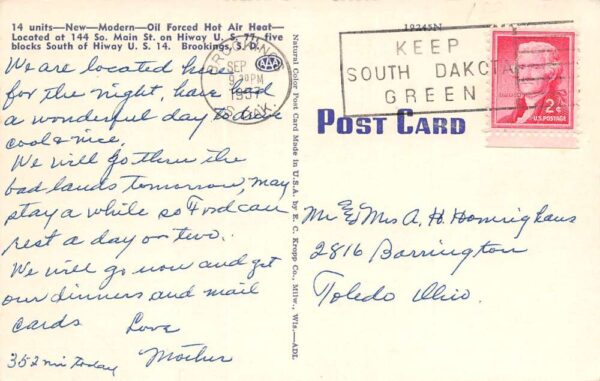 14 units—New—Modern—Oil Forced Hot Air Heat—
Located at 144 So. Main St. on Hiway U. S. 77, five
blocks South of Hiway U. S. 14. Brookings, S. D.
We are located here
for the night, have had
a wonderful day to drive
cool & nice.
We will go thru the
bad lands tomorrow, may
stay a while so Ford can
rest a day or two.
We will go now and get
our dinners and mail
cards Love
Mother
352 mi today
Natural Color Post Card Made in U.S.A. by E. C. Kropp Co., Milw., Wis.—ADL
BROOKINGS
SEP
9 PM
1957
S. DAK.
AAA
19245N
KEEP
SOUTH DAKOTA
GREEN
2¢
U.S. POSTAGE
POST CARD
Mr & Mrs A. H. Homrighaus
2816 Barrington
Toledo Ohio.